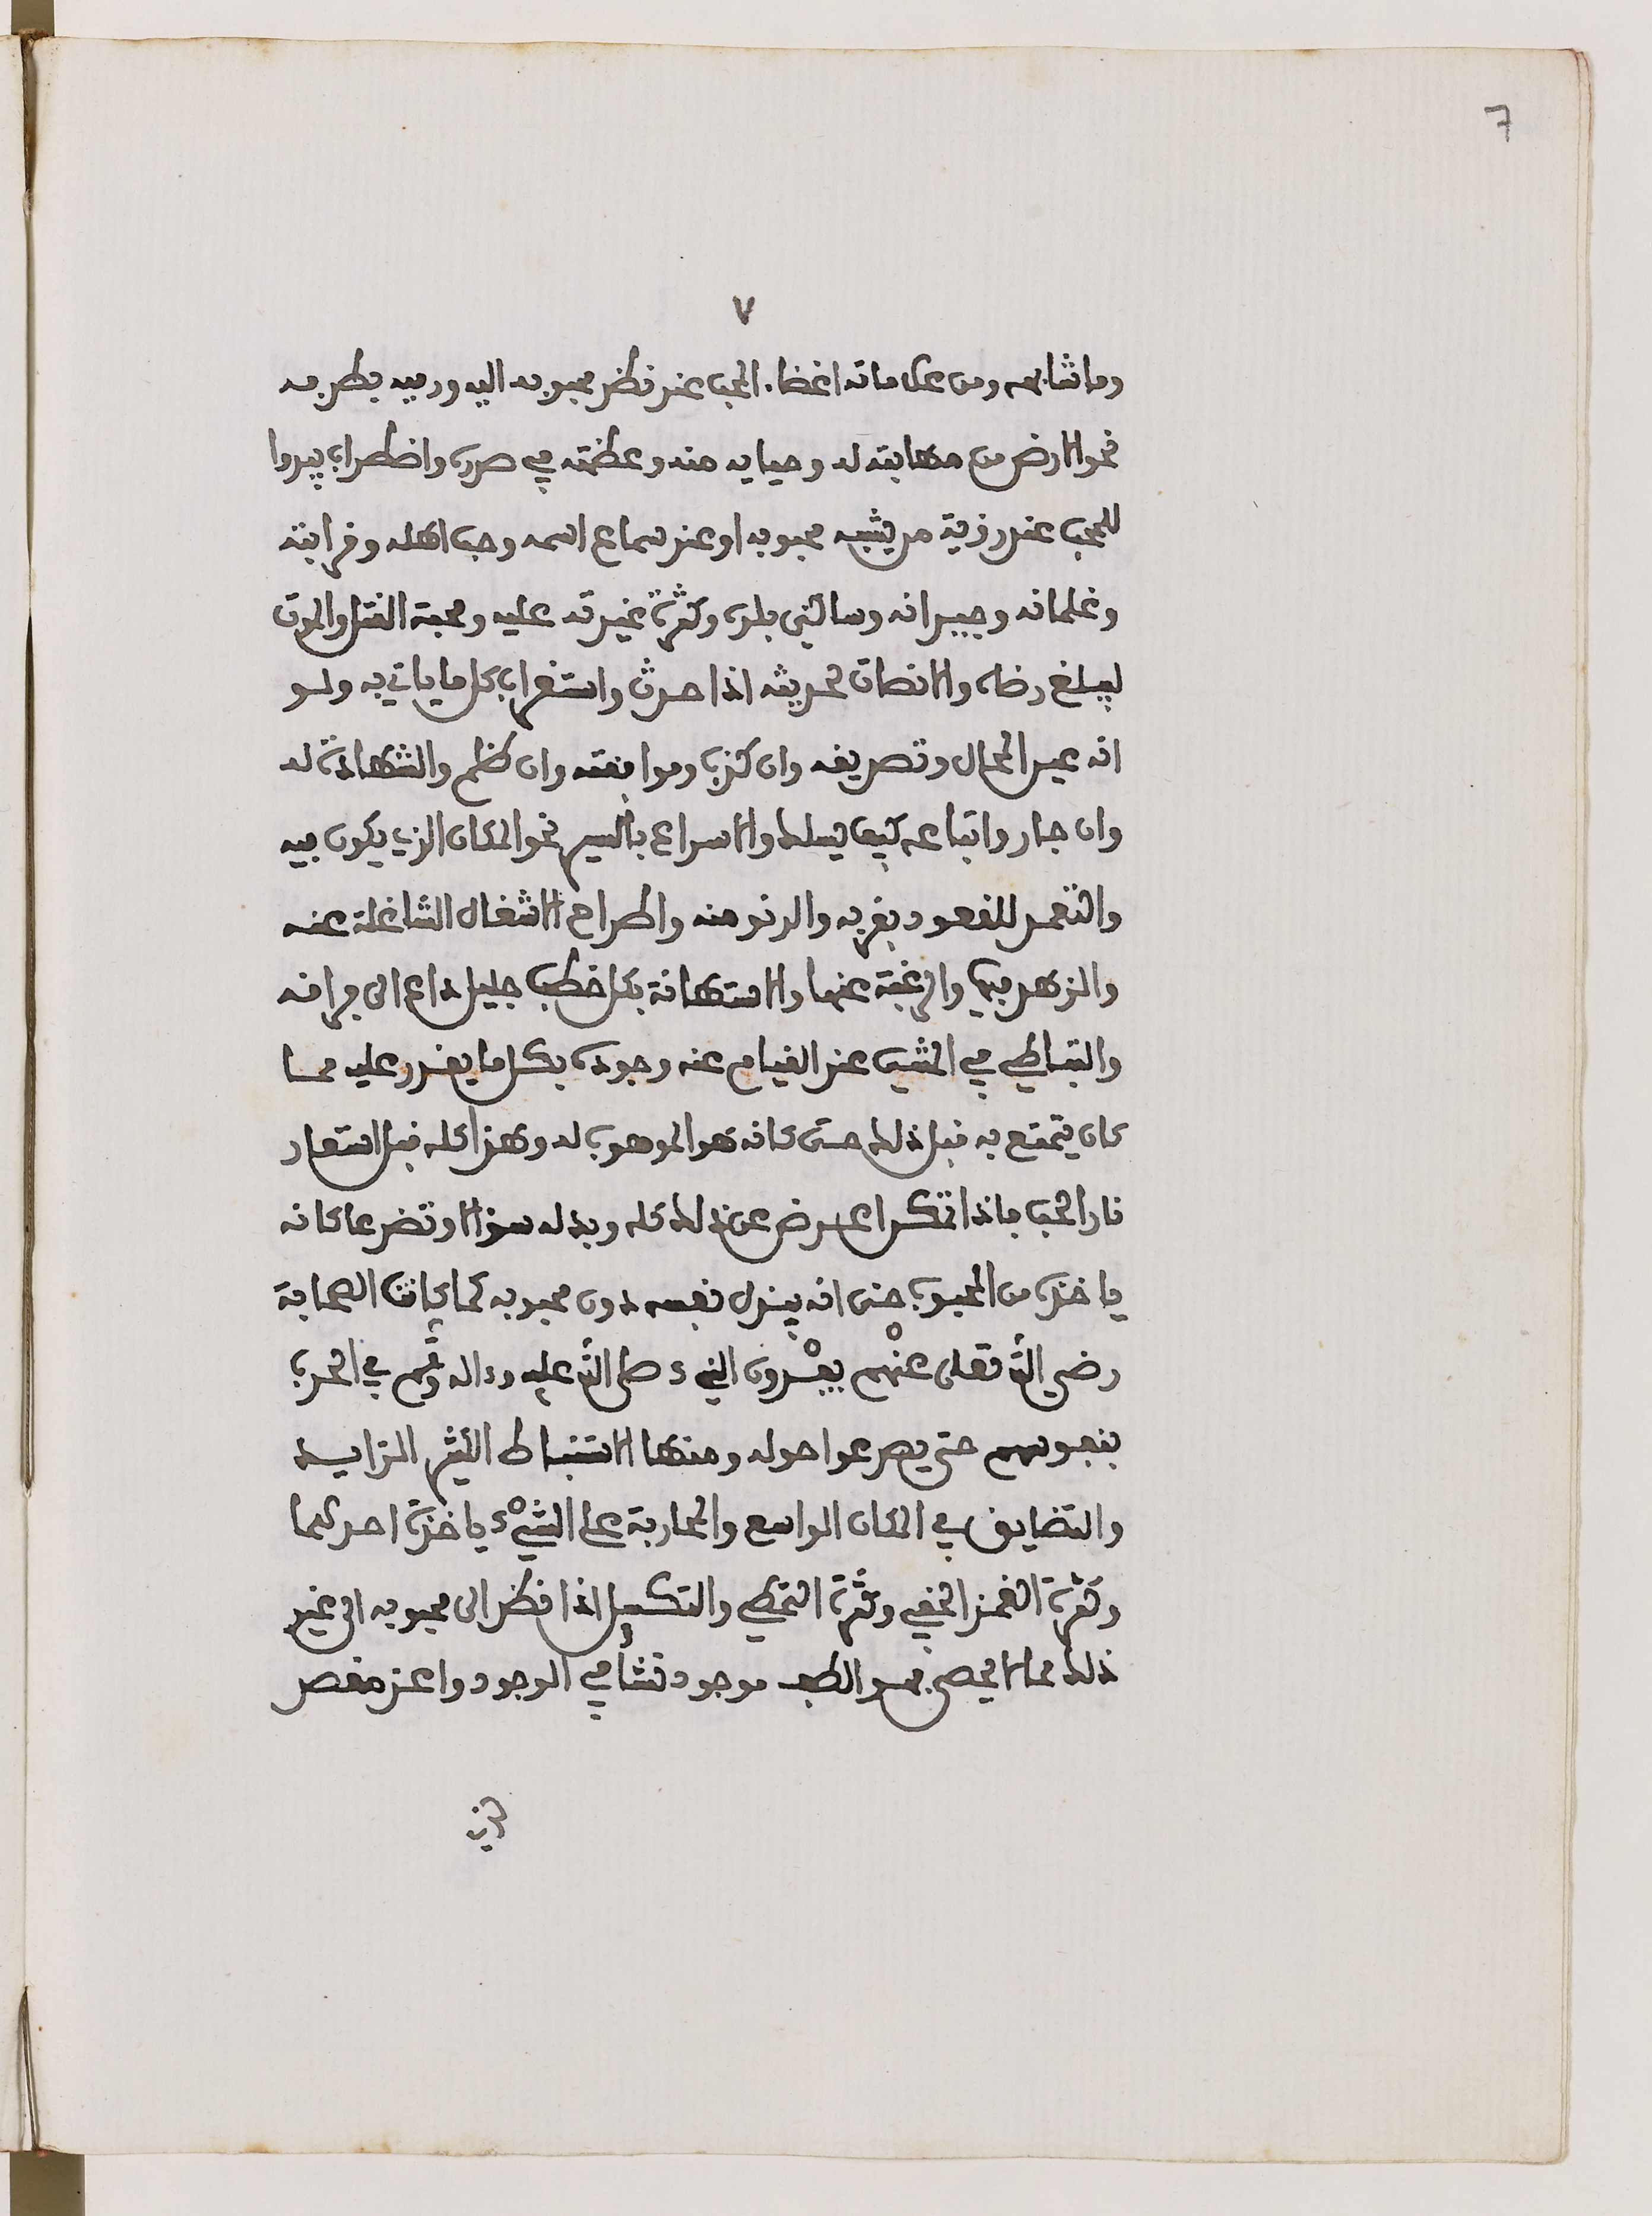 7
٧
وما شابهه ومن علاماته اغضاء المحب عند نظر محبوبه اليه ورميه بطرفه
نحو الارض من مهابته له وحيايه منه وعظمته في صدره واضطراب يبدوا
للمحب عند رؤية من يشبه محبوبه او عند سماع اسمه وحب اهله وقرابته
وغلمانه وجيرانه وساكني بلده وكثرة غيرته عليه ومحبة القتل والموت
ليبلغ رضاه والانصات لحديثه اذا حدث واستغراب كل ما ياتي به ولو
انه عين المحال وتصديقه وان كذب وموافقته وان ظلم والشهادة له
وان جار واتباعه كيف يسلك والاسراع بالسير نحو المكان الذي يكون فيه
والتعمد للقعود بقربه والدنو منه واطراح الاشغال الشاغلة عنه
والزهد فيها والرغبة عنها والاستهانة بكل خطب جليل داع الى فراقه
والتباطي في المشي عند القيام عنه وجوده بكل ما يقدر عليه مما
كان يتمتع به قبل ذلك حتى كانه هو الموهوب له وهذا كله قبل استعار
نار الحب فاذا تمكن اعرض عن ذلك كله وبدله سؤالا وتضرعا كانه
ياخذه من المحبوب حتى انه يبذل نفسه دون محبوبه كما كانت الصحابة
رضي الله تعلى عنهم يفدون النبيء صلى الله عليه وءاله وسلم في الحرب
بنفوسهم حتى يصرعوا حوله ومنها الانبساط الكثير الزايد
والتضايق في المكان الواسع والمحاربة على الشيء ياخذه احدهما
وكثرة الغمز الخفي وكثرة التمطي والتكسل اذا نظر الى محبوبه الى غير
ذلك مما لا يحصى موجود نشا في الوجود واعذ مقصر